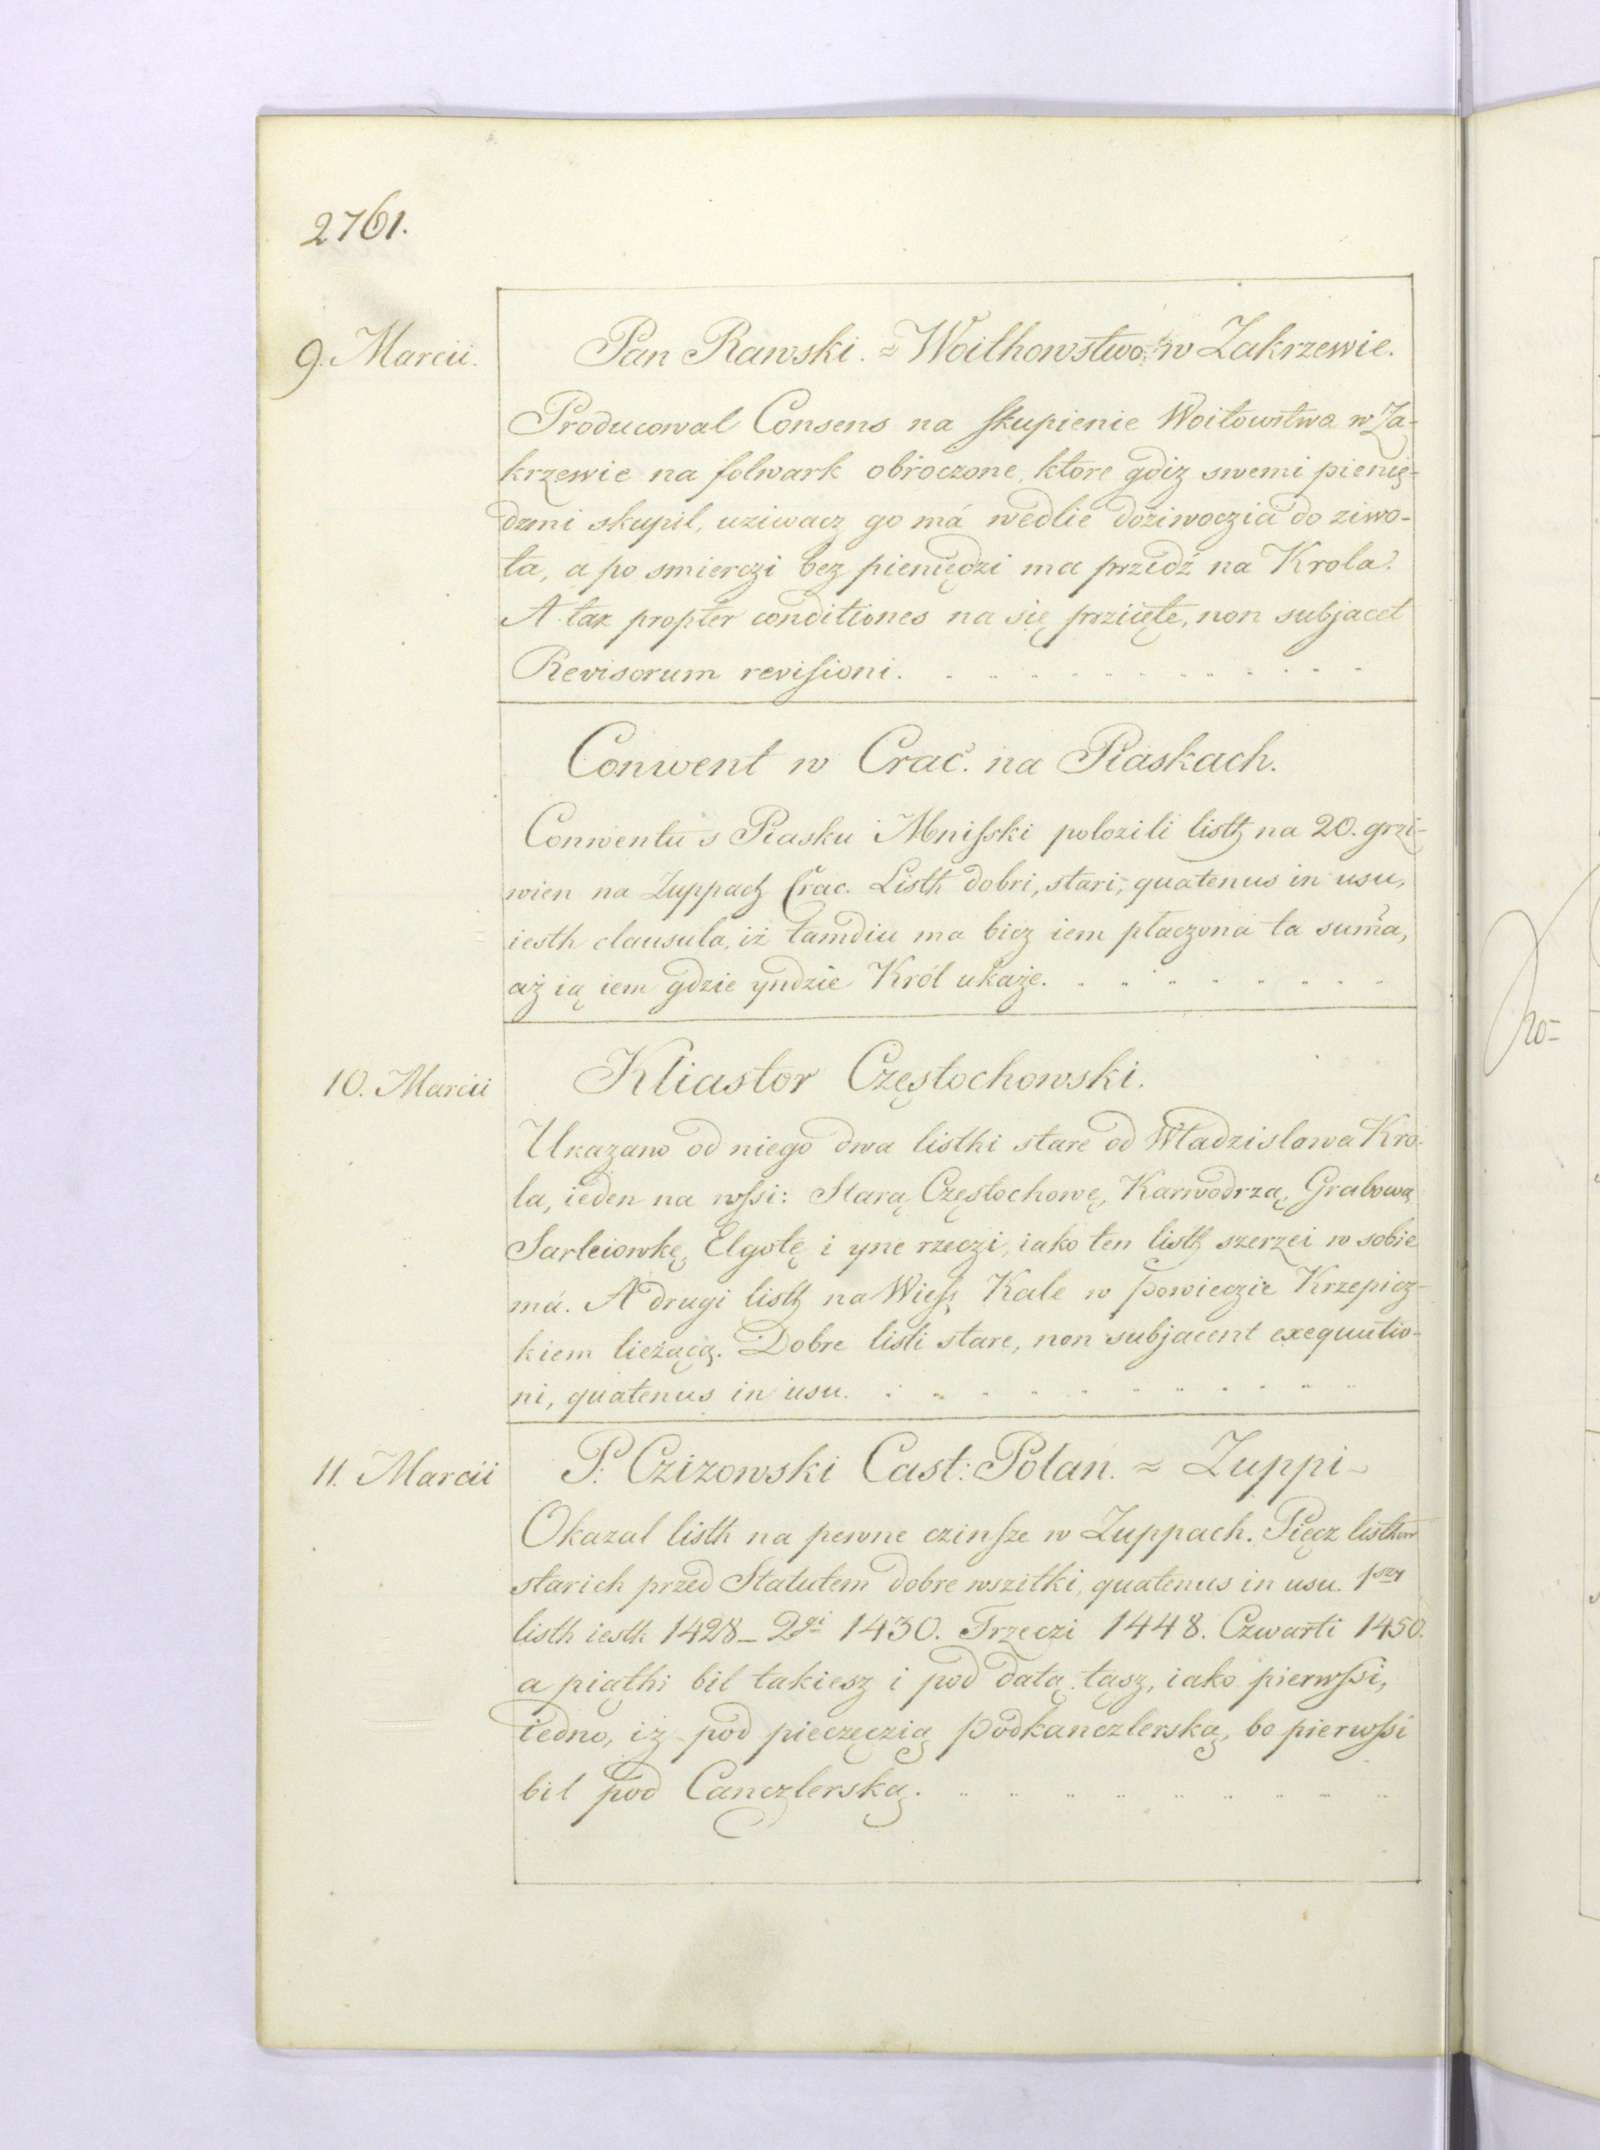 2761.
9. Marcii.
Pan Rawski. = Woithowstwo w Zakrzewie.
Producowal Consens na skupienie Woitowstwa w Za-
krzewie na folwark obroczone, ktore gdiz swemi pienię-
dzmi skupil, uziwacz go má wedlie doziwoczia do ziwo-
ta, a po smierczi bez pieniędzi ma przidź na Krola.
A tak propter conditiones na się przięte, non subjacet
Revisorum revisioni.
Conwent w Crac. na Piaskach.
Conwentu s Piasku Mnisski polozili listh na 20. grzi-
wien na Zuppach Crac. Listh dobri, stari, quatenus in usu,
iesth clausula, iż tamdiu ma bicz iem płaczona ta suma,
aż ią iem gdzie yndzie Król ukaże.
10. Marcii
Kliastor Częstochowski.
Ukazano od niego dwa listhi stare od Władzislowa Kro-
la, ieden na wssi: Starą Częstochowę, Karwodrzą, Grabową
Sarleiowkę, Elgotę i yne rzeczi, iako ten listh szerzei w sobie
má. A drugi listh na Wiess Kale w powieczie Krzepicz-
kiem lieżącą. Dobre listi stare, non subjacent exequutio-
ni, quatenus in usu.
11. Marcii
P: Czizowski Cast: Polan. = Zuppi-
Okazal listh na pewne czinsze w Zuppach. Pięcz listhow
starich przed Statutem dobre wszitki, quatenus in usu. 1szy
listh iesth 1428 - 2gi 1430. Trzeczi 1448. Czwarti 1450.
a piąthi bil takiesz i pod datą tąsz, iako pierwssi,
iedno, iż pod pieczęczią podkanczlerską, bo pierwssi
bil pod Canczlerską.
ro-